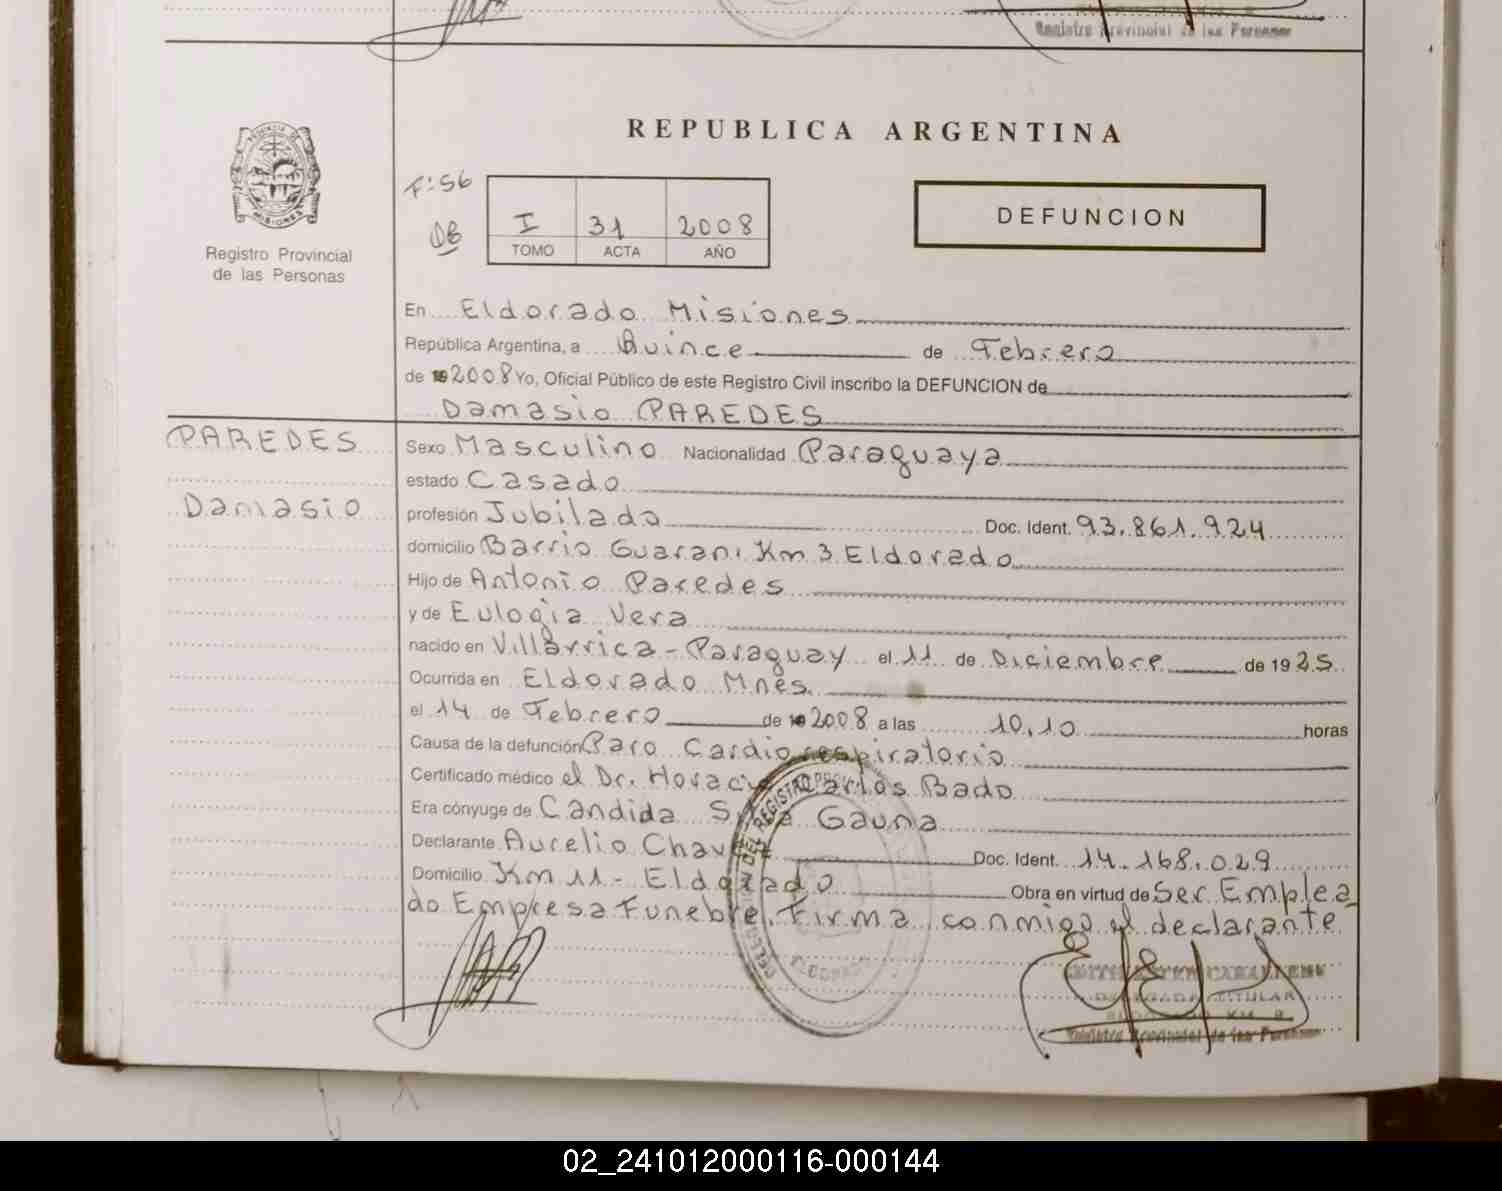 Registro Provincial de las Personas
REPUBLICA ARGENTINA
F:56
I 31 2008
TOMO ACTA AÑO
DEFUNCION
Registro Provincial
de las Personas
En Eldorado Misiones
República Argentina, a Quince de Febrero
de 2008 Yo, Oficial Público de este Registro Civil inscribo la DEFUNCION de
Damasio PAREDES
PAREDES
Damasio
Sexo Masculino Nacionalidad Paraguaya
estado Casado
profesión Jubilado Doc. Ident. 93.861.924
domicilio Barrio Guarani Km 3 Eldorado
Hijo de Antonio Paredes
y de Eulogia Vera
nacido en Villarrica - Paraguay el 11 de Diciembre de 1925
Ocurrida en Eldorado Mnes.
el 14 de Febrero de 2008 a las 10,10 horas
Causa de la defunción Paro Cardiorespiratorio
Certificado médico el Dr. Horacio Carlos Bado
Era cónyuge de Candida Gauna
Declarante Aurelio Doc. Ident. 14.168.029
Domicilio Km 11 - Eldorado Obra en virtud de Ser Emplea
do Empresa Funebre. Firma conmigo el declarante
REGISTRO
TITULAR
Registro Provincial de las Personas
02_241012000116-000144